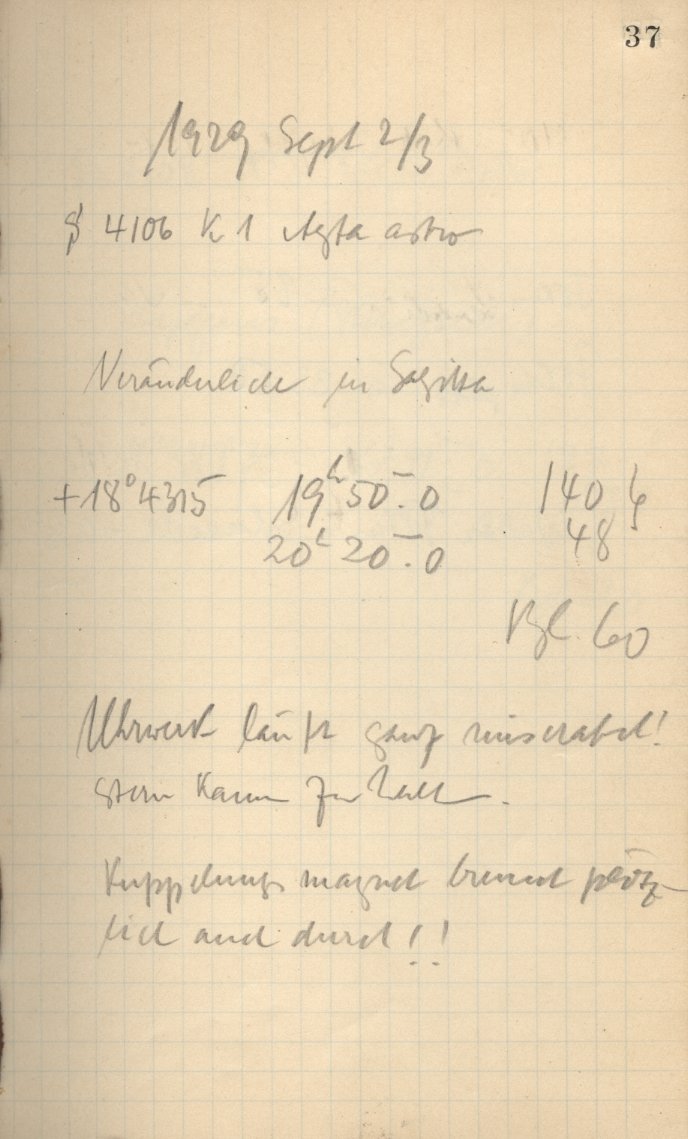 37
1929 Sept 2/3
4106 K 1 Agfa astro
Veränderliche in Sagitta
+18° 4315 19h 50m.0 140
20h 20m.0 48
Bl. 60
Uhrwerk läuft ganz miserabel!
Stern kaum zu halten.
Kupplungsmagnet brennt plötz-
lich auch durch!!